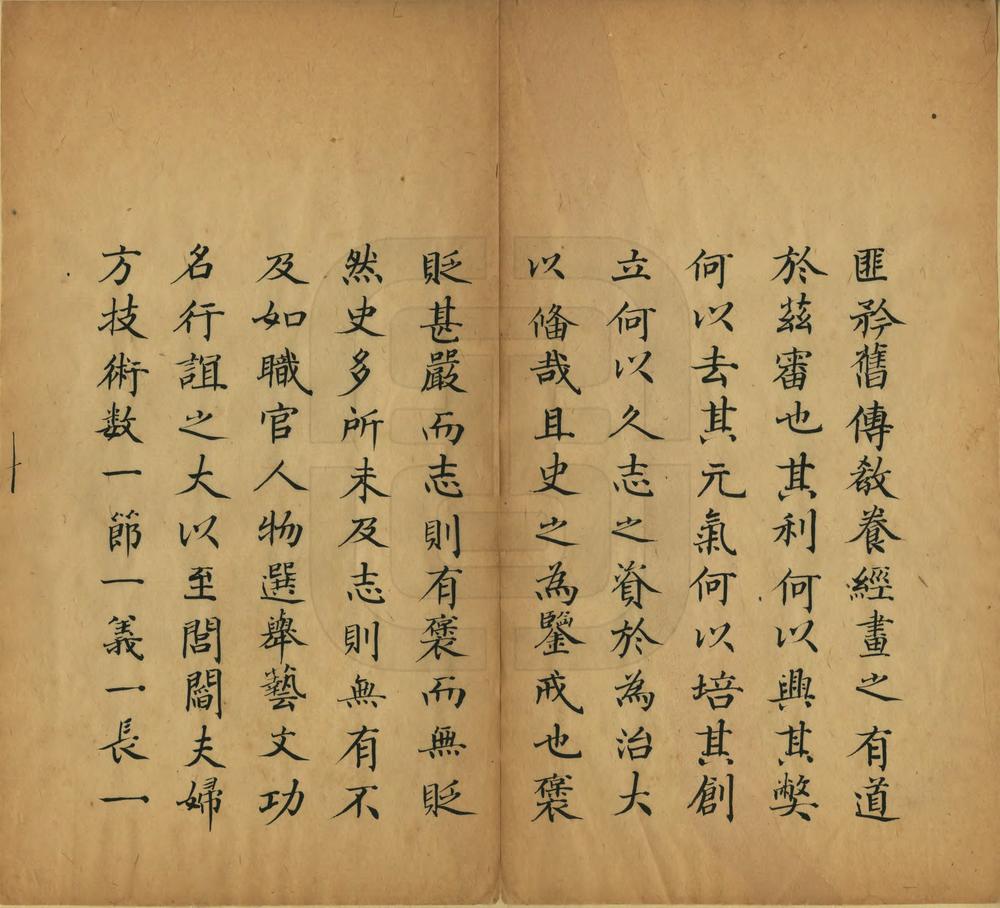 匪矜舊傳教養經畫之有道
於茲審也其利何以興其弊
何以去其元氣何以培其創
立何以久志之資於為治大
以俻哉且史之為鑒戒也褒
貶甚嚴而志則有褒而無貶
然史多所未及志則無有不
及如職官人物選舉藝文功
名行誼之大以至閭閻夫婦
方技術数一節一義一長一